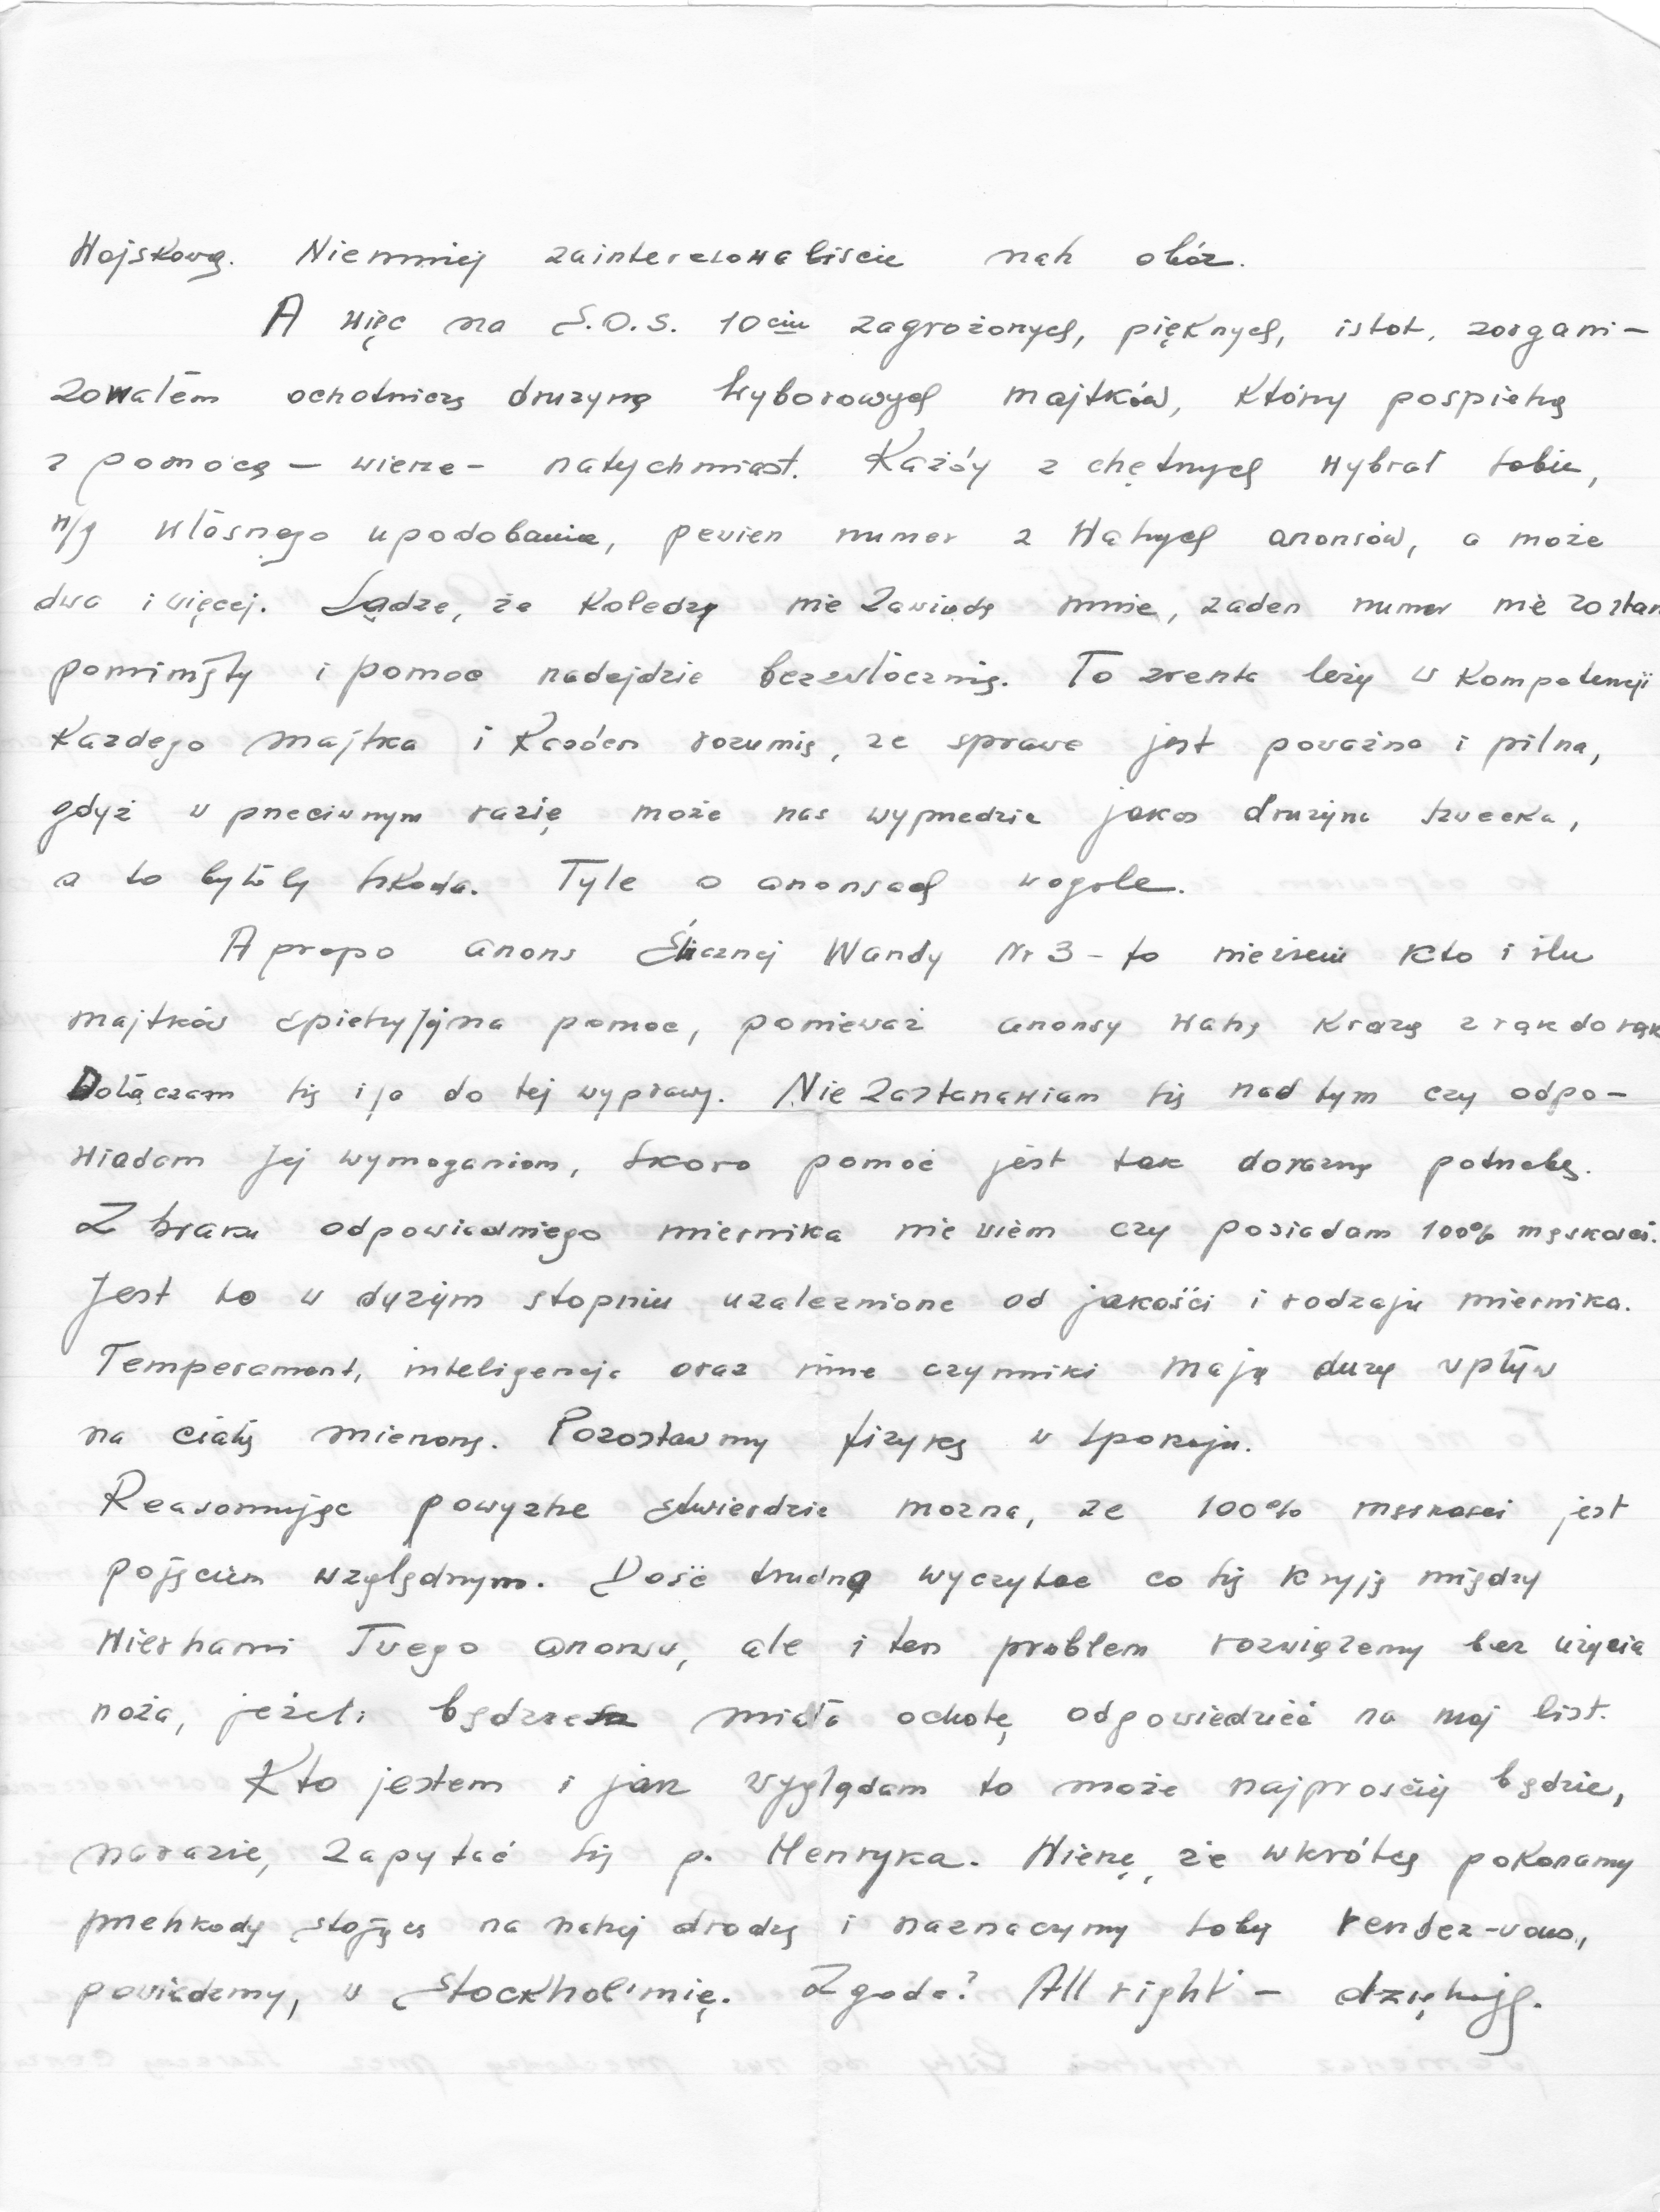 Wojskową. Niemniej zainteresowaliście nasz obóz.
A więc na S.O.S. 10ciu zagrożonych, pięknych, istot, zorgani-
zowałem ochotniczą drużynę wyborowych majtków, którzy pospieszą
z pomocą – wierzę – natychmiast. Każdy z chętnych wybrał sobie,
w/g własnego upodobania, pewien numer z Waszych anonsów, a może
dwa i więcej. Sądzę, że koledzy nie zawiodą mnie, żaden numer nie zostan
pominięty i pomoc nadejdzie bezzwłocznie. To zresztą leży w kompetencji
każdego majtka i każden rozumie, że sprawa jest poważna i pilna,
gdyż w przeciwnym razie może nas wyprzedzić jakaś drużyna szwecka,
a to byłoby szkoda. Tyle o anonsach wogóle.
A propo anons Ślicznej Wandy Nr 3 – to nie wiem kto i ilu
majtków spieszy Jej na pomoc, ponieważ anonsy Wasze krążą z rąk do rąk
Dołączam się i ja do tej wyprawy. Nie zastanawiam się nad tym czy odpo-
wiadam Jej wymoganiom, skoro pomoc jest tak doraźnie potrzebną.
Z braku odpowiedniego miernika nie wiem czy posiadam 100% męskości.
Jest to w dużym stopniu uzależnione od jakości i rodzaju miernika.
Temperament, inteligencja oraz inne czynniki mają duży wpływ
na ciało mierzone. Pozostawmy fizykę w spokoju.
Reasumując powyższe stwierdzić można, że 100% męskości jest
pojęciem względnym. Dość trudno wyczytać co się kryje między
wierszami Twego anonsu, ale i ten problem rozwiążemy bez użycia
noża, jeżeli będziesz miała ochotę odpowiedzieć na mój list.
Kto jestem i jak wyglądam to może najprościej będzie,
narazie, zapytać się p. Henryka. Wierzę, że wkrótce pokonamy
przeszkody stojące na naszej drodze i naznaczymy sobie rendez-vous,
powiedzmy, w Stockholmie. Zgoda? All right – dziękuję.